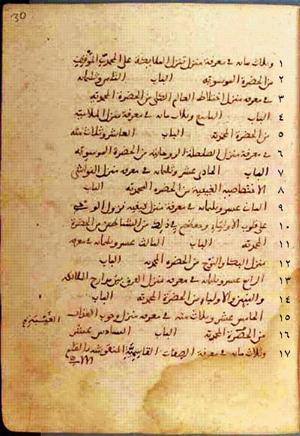 30
١ وثلاث مائة في معرفة منزل تنزل الملائكة على المحمدي الموقف
٢ من الحضرة الموسوية الباب التاسع وثلثمائة
٣ في معرفة منزل اختلاط العالم الكلي من الحضرة المحمدية
٤ الباب التاسع وثلاث مائة في معرفة منزل الملامية
٥ من الحضرة المحمدية الباب العاشر وثلاث مئة
٦ في معرفة منزل الصلصلة الروحانية من الحضرة الموسوية
٧ الباب الحادي عشر وثلثمائة في معرفة منزل النواشئ
٨ الاختصاصية الغيبية من الحضرة المحمدية الباب
٩ الثاني عشر وثلثمائة في معرفة منزل كيفية نزول الوحي
١٠ على قلوب الأولياء وحفظهم في ذلك من الشياطين من الحضرة
١١ المحمدية الباب الثالث عشر وثلثمائة في معرفة
١٢ منزل البكاء والنوح من الحضرة المحمدية الباب
١٣ الرابع عشر وثلثمائة في معرفة منزل الفرق بين مدارج الملائكة
١٤ والنبيين والأولياء من الحضرة المحمدية الباب
١٥ الخامس عشر وثلاث مئة في معرفة منزل وجوب العذاب
١٦ من الحضرة المحمدية الباب السادس عشر
١٧ وثلاث مائة في معرفة الصفات القائمة المنقوشة بالقلم